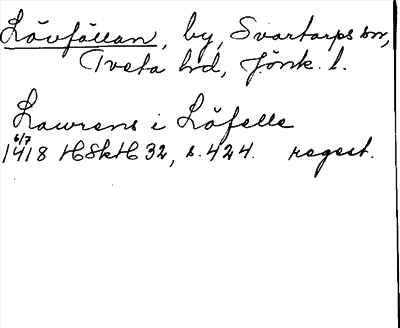 Lövfällan, by, Svartorps sn,
Tveta hd, Jönk. l.
Lawrens i Löfelle
6/7
1418 HSkH 32, s. 424. regest.